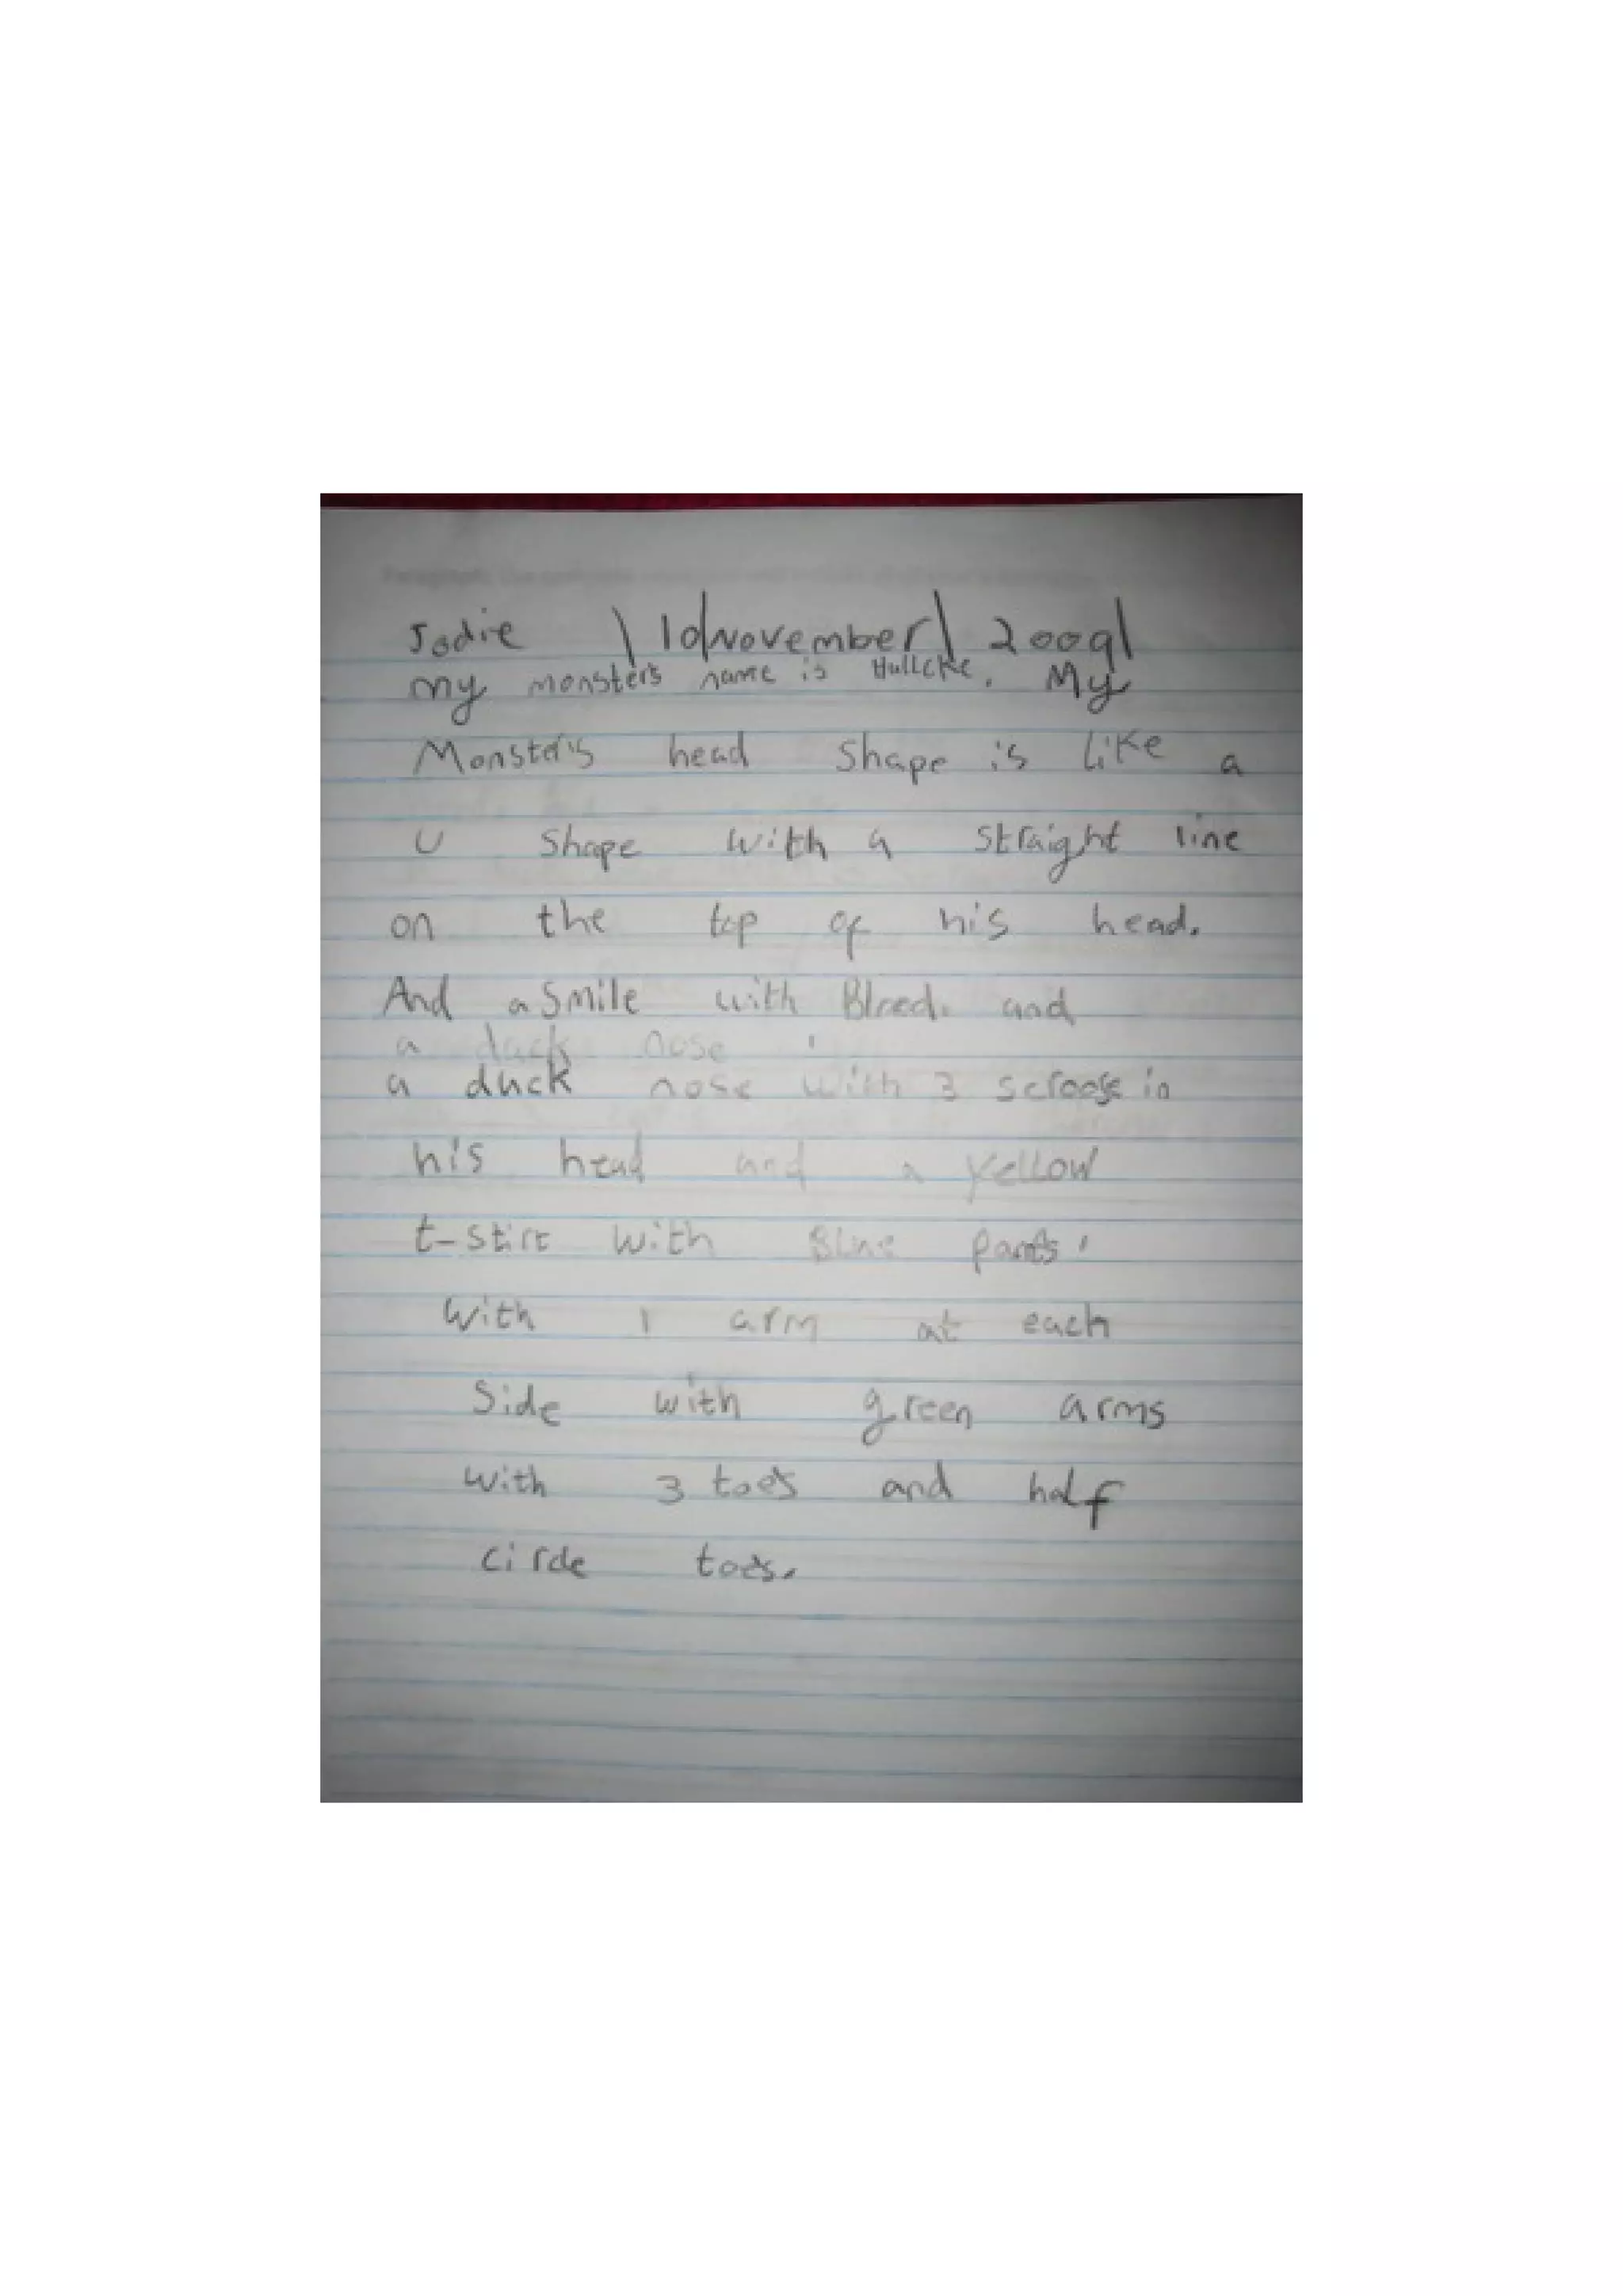 Jodie \10\November\ 2009\
my monster's name is Hullcke. My
Monster's head shape is like a
U shape with a straight line
on the top of his head.
And a smile with Blood. and
a duck nose
a duck nose with 3 scroose in
his head and a yellow
t-stirt with Blue pants.
With 1 arm at each
Side with green arms
with 3 toes and half
circle toes.